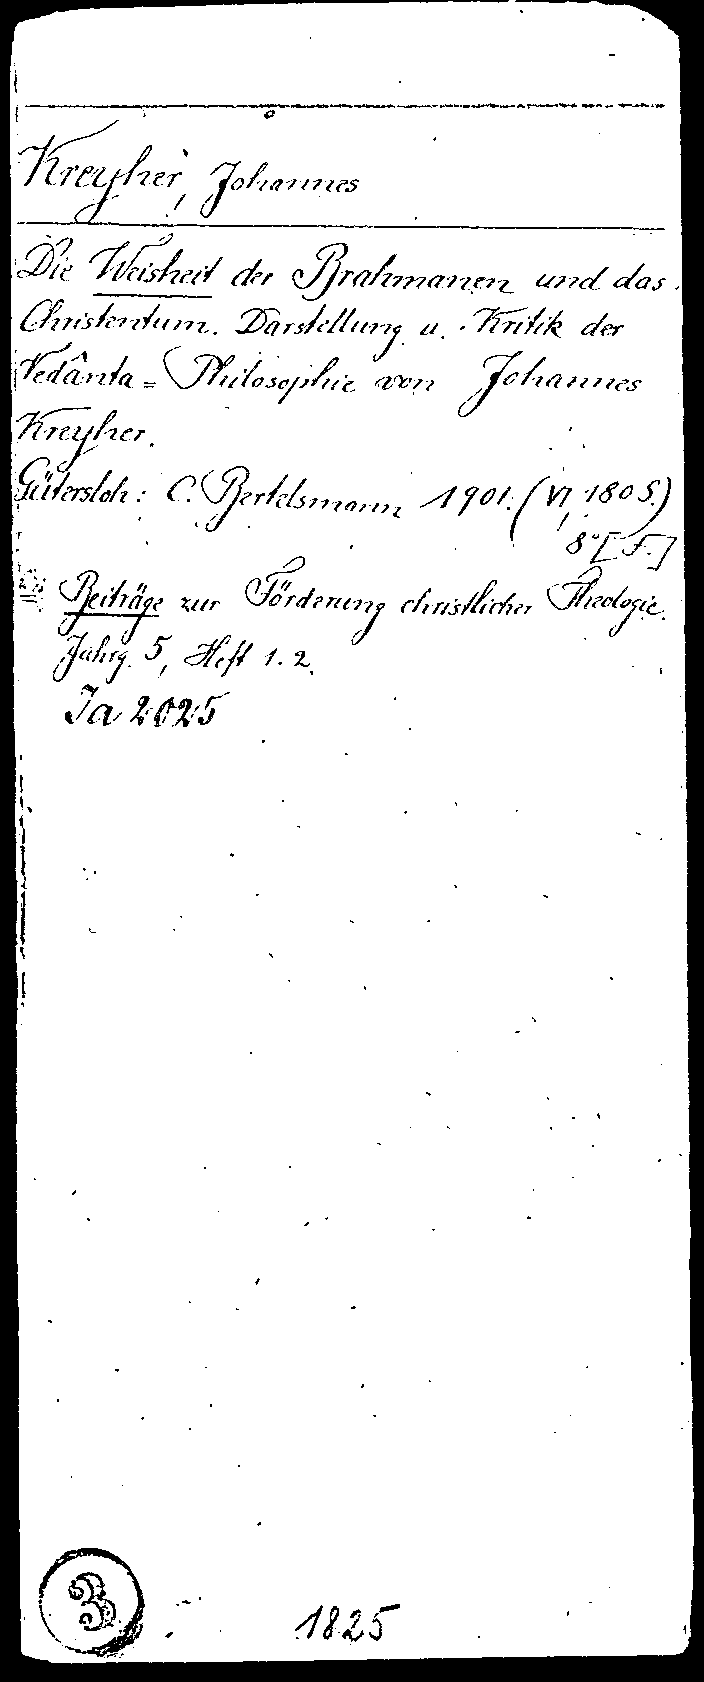 Kreyher, Johannes
Die Weisheit der Brahmanen und das
Christentum. Darstellung u. Kritik der
Vedânta= Philosophie von Johannes
Kreyher.
Gütersloh: C. Bertelsmann 1901. (VI, 180 S.)
8° [F.]
= Beiträge zur Förderung christlicher Theologie.
Jahrg. 5, Heft 1. 2.
Ja 2025
3
1825